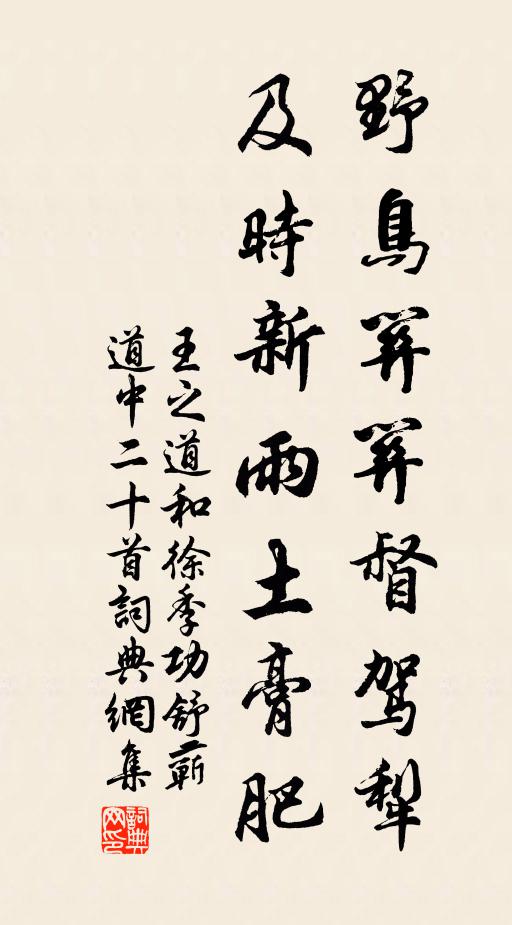 野鳥關關督駕犁
及時新雨土膏肥
王之道和徐季功舒蘄
道中二十首詞典網集
詞典
网印